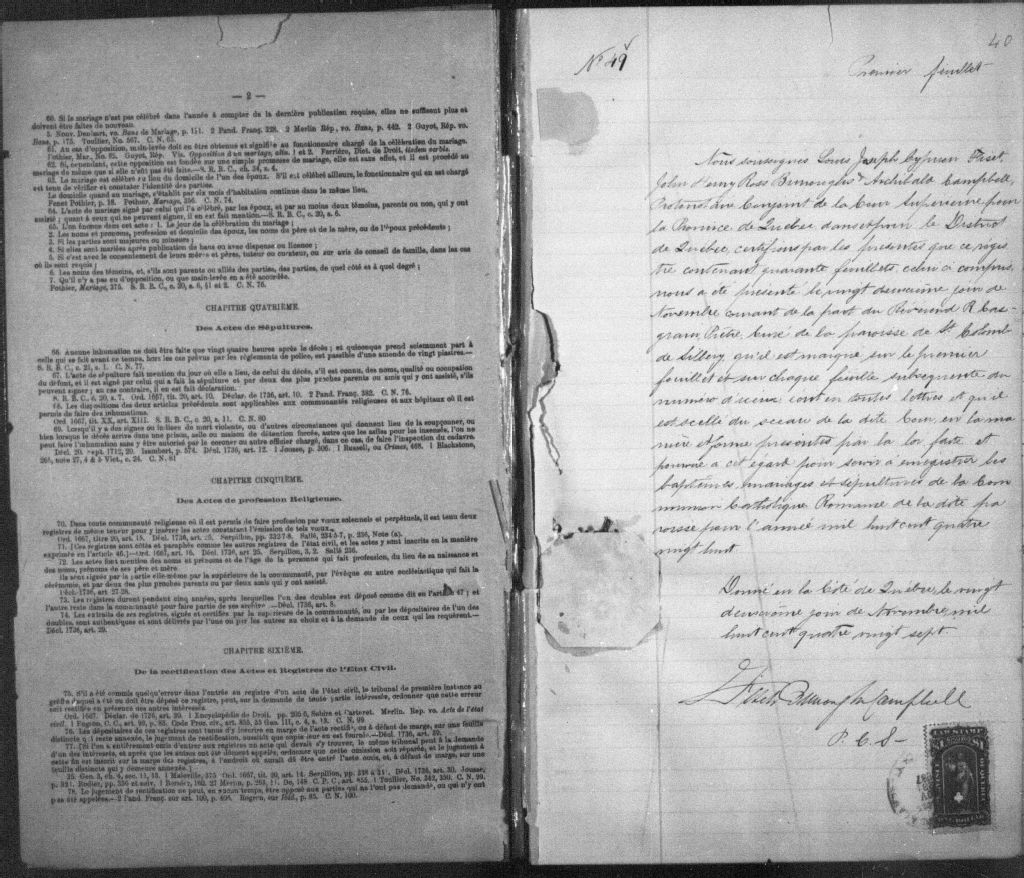 — 2 —
60. Si le mariage n'est pas célébré dans l'année à compter de la dernière publication requise, elles ne suffisent plus et
doivent être faites de nouveau.
5. Nouv. Denisart, vo. Bans de Mariage, p. 111. 2 Pand. Franç. 328. 2 Merlin Rép, vo. Bans, p. 442. 2 Guyot, Rép. vo.
Bans, p. 175. Toullier, No. 567. C. N. 65.
61. Au cas d'opposition, main-levée doit en être obtenue et signifiée au fonctionnaire chargé de la célébration du mariage.
Pothier, Mar., No. 82. Guyot, Rép. Vis. Opposition à un mariage, 1 et 2. Ferrière, Dict. de Droit, iisdem verbis.
62. Si, cependant, cette opposition est fondée sur une simple promesse de mariage, elle est sans effet, et il est procédé au
mariage de même que si elle n'eût pas été faite.—S. R. B. C., ch. 34, s. 4.
63. Le mariage est célébré au lieu du domicile de l'un des époux. S'il est célébré ailleurs, le fonctionnaire qui en est chargé
est tenu de vérifier et constater l'identité des parties.
Le domicile quant au mariage, s'établit par six mois d'habitation continue dans le même lieu.
Fenet Pothier, p. 18. Pothier, Mariage, 356. C. N. 74.
64. L'acte de mariage signé par celui qui l'a célébré, par les époux, et par au moins deux témoins, parents ou non, qui y ont
assisté ; quant à ceux qui ne peuvent signer, il en est fait mention.—S. R. B. C., c. 20, s. 6.
65. L'on énonce dans cet acte : 1. Le jour de la célébration du mariage ;
2. Les noms et prénoms, profession et domicile des époux, les noms du père et de la mère, ou de l'époux précédents ;
3. Si les parties sont majeures ou mineures ;
4. Si elles sont mariées après publication de bans ou avec dispense ou licence ;
5. Si c'est avec le consentement de leurs mère et pères, tuteur ou curateur, ou sur avis de conseil de famille, dans les cas
où ils sont requis ;
6. Les noms des témoins, et, s'ils sont parents ou alliés des parties, de quel côté et à quel degré ;
7. Qu'il n'y a pas eu d'opposition, ou que main-levée en a été accordée.
Pothier, Mariage, 375. S. R. B. C., c. 20, s. 6, §1 et 2. C. N. 76.
CHAPITRE QUATRIÈME.
Des Actes de Sépultures.
66. Aucune inhumation ne doit être faite que vingt quatre heures après le décès ; et quiconque prend sciemment part à
celle qui se fait avant ce temps, hors les cas prévus par les règlements de police, est passible d'une amende de vingt piastres.—
S. R. B. C., c. 21, s. 1. C. N. 77.
67. L'acte de sépulture fait mention du jour où elle a lieu, de celui du décès, s'il est connu, des noms, qualité ou occupation
du défunt, et il est signé par celui qui a fait la sépulture et par deux des plus proches parents ou amis qui y ont assisté, s'ils
peuvent signer ; au cas contraire, il en est fait déclaration.
S. R. B. C., c. 20, s. 7. Ord. 1667, tit. 20, art. 10. Déclar. de 1736, art. 10. 2 Pand. Franç. 382. C. N. 76.
68. Les dispositions des deux articles précédents sont applicables aux communautés religieuses et aux hôpitaux où il est
permis de faire des inhumations.
Ord 1667, tit. XX, art. XIII. S. R. B. C., c. 20, s. 11. C. N. 80
69. Lorsqu'il y a des signes ou indices de mort violente, ou d'autres circonstances qui donnent lieu de la soupçonner, ou
bien lorsque le décès arrive dans une prison, asile ou maison de détention forcée, autre que les asiles pour les insensés, l'on ne
peut faire l'inhumation sans y être autorisé par le coroner ou autre officier chargé, dans ce cas, de faire l'inspection du cadavre.
Décl. 20. Sept. 1712, 20. Isambert, p. 574. Décl. 1736, art. 12. 1 Jousse, p. 306. 1 Russell, on Crimes, 468. 1 Blackstone,
265, note 27, 4 & 5 Vict., c. 24. C. N. 81
CHAPITRE CINQUIÈME.
Des Actes de profession Religieuse.
70. Dans toute communauté religieuse où il est permis de faire profession par vœux solennels et perpétuels, il est tenu deux
registres de même teneur pour y insérer les actes constatant l'émission de tels vœux.
Ord. 1667, titre 20, art. 15. Serpillon, pp. 332-7-8. Sallé, 234-5-7, p. 236, Note (a).
71. [Ces registres sont côtés et paraphés comme les autres registres de l'état civil, et les actes y sont inscrits en la manière
exprimée en l'article 46.]—Ord. 1667, art. 16. Décl. 1736, art 25. Serpillon, 3, 2. Sallé 236.
72. Les actes font mention des noms et prénoms et de l'âge de la personne qui fait profession, du lieu de sa naissance et
des noms, prénoms de ses père et mère.
Ils sont signés par la partie elle-même par la supérieure de la communauté, par l'évêque ou autre ecclésiastique qui fait la
cérémonie, et par deux des plus proches parents ou par deux amis qui y ont assisté.
Décl. 1736, art 27-28.
73. Les registres durent pendant cinq années, après lesquelles l'un des doubles est déposé comme dit en l'article 47 ; et
l'autre reste dans la communauté pour faire partie de ses archives.—Décl. 1736, art. 8.
74. Les extraits de ces registres, signés et certifiés par la supérieure de la communauté, ou par les dépositaires de l'un des
doubles, sont authentiques et sont délivrés par l'une ou par les autres au choix et à la demande de ceux qui les requèrent.—
Décl. 1736, art. 29.
CHAPITRE SIXIÈME.
De la rectification des Actes et Registres de l'État Civil.
75. S'il a été commis quelqu'erreur dans l'entrée au registre d'un acte de l'état civil, le tribunal de première instance au
greffe duquel a été ou doit être déposé ce registre, peut, sur la demande de toute partie intéressée, ordonner que cette erreur
soit rectifiée en présence des autres intéressés.
Ord. 1667. Déclar. de 1736, art. 30. 1 Encyclopédie de Droit. Merlin. Rep. vo. Acte de l'état
civil,
76. Les dépositaires de ces registres sont tenus d'y inscrire en marge de l'acte rectifié, ou à défaut de marge, sur une feuille
distincte qui reste annexée, le jugement de rectification, aussitôt que copie leur en est fournie.—Décl. 1736, art. 30.
77. [Si l'on a entièrement omis d'entrer aux registres un acte qui devait s'y trouver, le même tribunal peut à la demande
d'un des intéressés, et après que les autres ont été dûment appelés, ordonner que cette omission soit réparée, et le jugement à
cette fin est inscrit sur la marge des registres, à l'endroit où aurait dû être entré l'acte omis, et, à défaut de marge, sur une
feuille distincte qui y demeure annexée.]
78. Le jugement de rectification ne peut, en aucun temps, être opposé aux parties qui ne l'ont pas demandé, ou qui n'y ont
pas été appelées.—2 Pand. Franç. sur art. 100, p. 406. Rogron, sur Ibid., p. 85. C. N. 100.
40
No 49
Premier feuillet
Nous soussignés Louis Joseph Cyprien Fiset,
John Henry Ross Burroughs & Archibald Campbell,
Protonotaire Conjoint de la Cour Supérieure pour
la Province de Québec dans et pour le District
de Québec, certifions par les présentes que ce regis
tre contenant quarante feuillets, celui ci compris,
nous a été présenté le vingt deuxième jour de
Novembre courant de la part du Révérend R. Cas-
grain, Prêtre, Curé de la paroisse de St. Colomb
de Sillery, qu'il est marqué sur le premier
feuillet et sur chaque feuille subséquente du
numéro d'iceux, écrit en toutes lettres et qu'il
est scellé du sceau de la dite Cour, en la ma
nière et forme prescrites par la loi faite et
pourvue à cet égard pour servir à enregistrer les
baptêmes, mariages et sépultures de la Com
munion Catholique Romaine de la dite pa
roisse pour l'année mil huit cent quatre
vingt huit.
Donné en la Cité de Québec, le vingt
deuxième jour de Novembre, mil
huit cent quatre vingt sept.
Fiset, Burroughs & Campbell
P. C. S.
LAW STAMP
$1 $1
QUEBEC
ONE DOLLAR